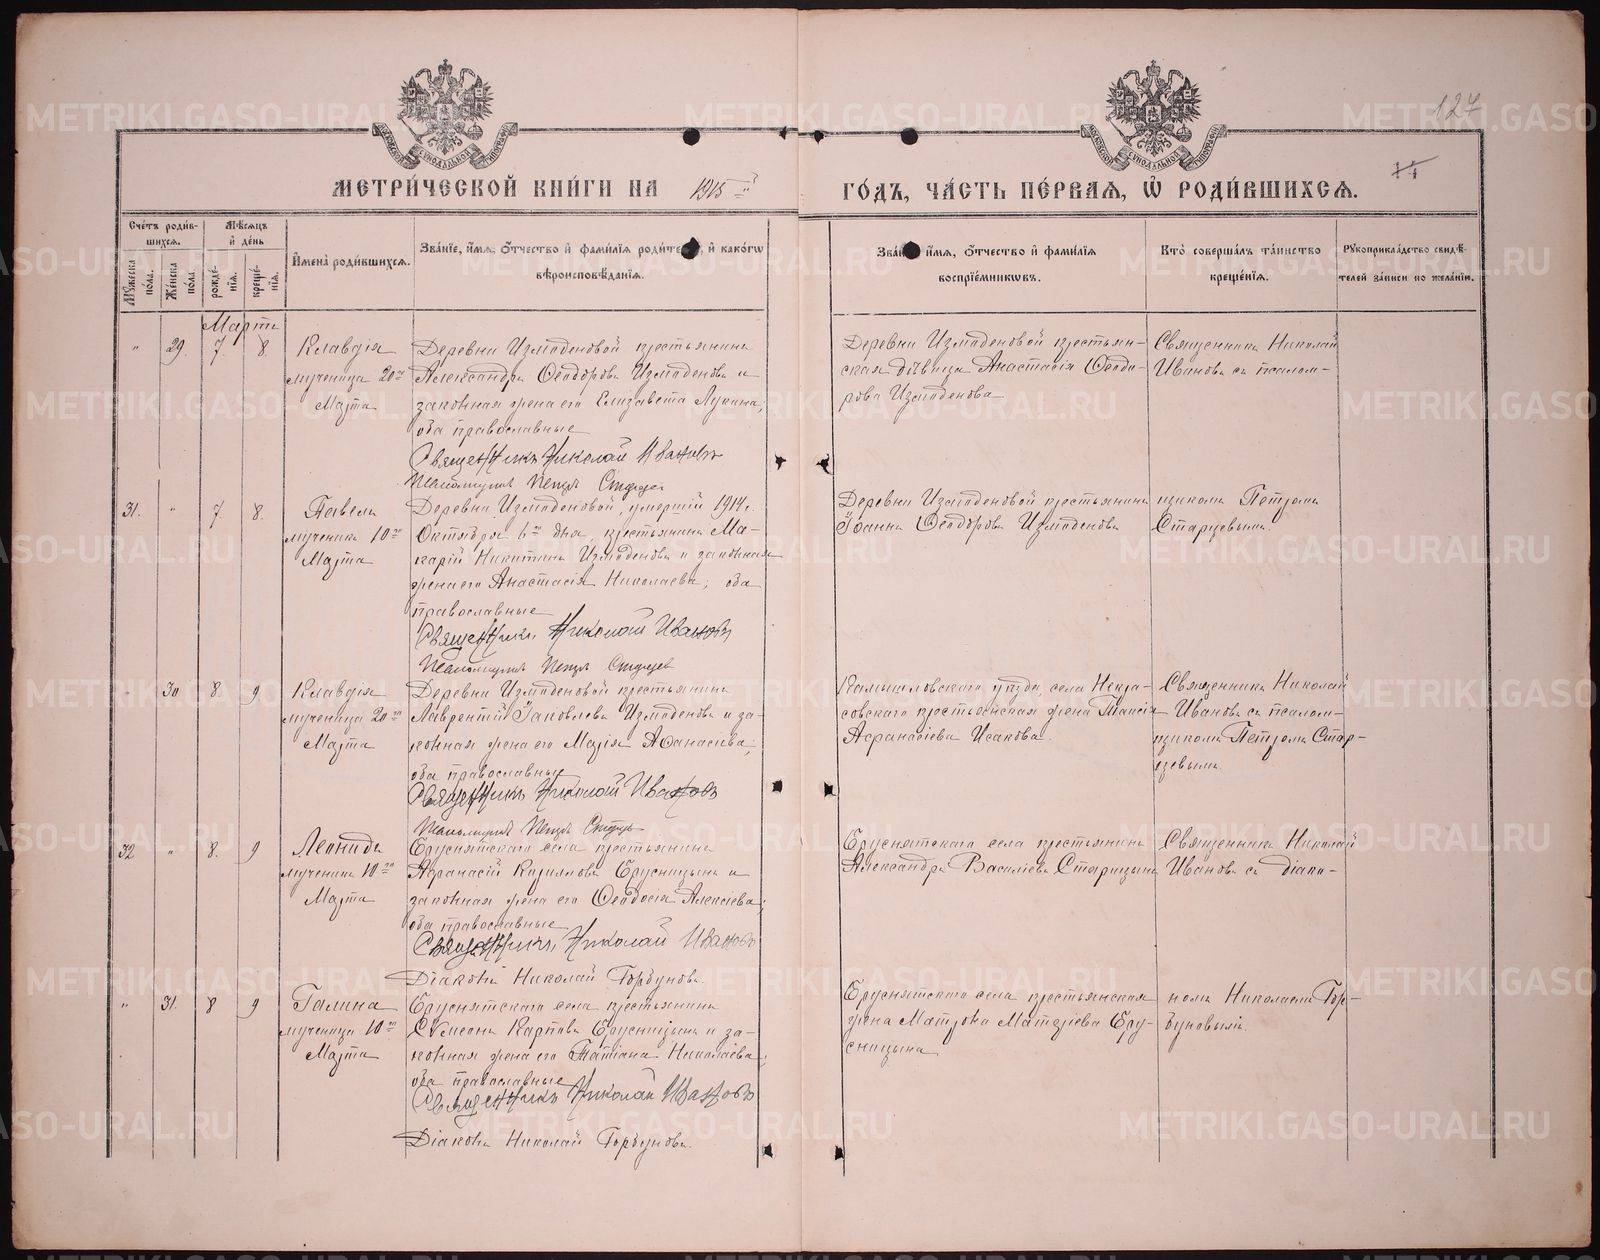 127
МЕТРИ́ЧЕСКОЙ КНИ́ГИ НА 1915 й
ГО́ДЪ, ЧА́СТЬ ПЕ́РВАЯ, Ѡ РОДИ́ВШИХСЯ.
Сче́тъ роди́в-
шихся.
Мѣ́сяцъ
и де́нь
Му́жеска по́ла.
Же́нска по́ла.
рожде́-
нія.
креще́-
нія.
Имена̀ роди́вшихся.
Зва́ніе, и́мя, о́тчество и фами́лія роди́те , и како́гѡ
вѣроисповѣ́данія.
Зва́н и́мя, о́тчество и фами́лія
воспріе́мникѡвъ.
Кто̀ соверша́лъ та́инство
креще́нія.
Рукоприкла́дство свидѣ́-
телей за́писи по жела́нію.
Марта
" 29. 7. 8.
Клавдія
мученица 20го
Марта
Деревни Измоденовой крестьянинъ
Александръ Ѳеодоровъ Измоденовъ и
законная жена его Елизавета Лукина;
оба православные
Священникъ Николай Ивановъ
Псаломщикъ Петръ Старцев
Деревни Измоденовой крестьян-
ская дѣвица Анастасія Ѳеодо-
рова Измоденова
Священникъ Николай
Ивановъ съ псалом-
31. " 7 8.
Павелъ
мученикъ 10го
Марта
Деревни Измоденовой, умершій 1914 г.
Октября 6го дня, крестьянинъ Ма-
карій Никитинъ Измоденовъ и законная
жена его Анастасія Николаева; оба
православные
Священникъ Николай Ивановъ
Псаломщикъ Петръ Старцев
Деревни Измоденовой крестьянинъ
Іоаннъ Ѳеодоровъ Измоденовъ
щикомъ Петромъ
Старцевымъ.
30 8. 9
Клавдія
мученица 20го
Марта
Деревни Измоденовой крестьянинъ
Лаврентій Іаковлевъ Измоденовъ и за-
конная жена его Марія Аѳанасіева;
оба православные
Священникъ Николай Ивановъ
Псаломщикъ Петръ
Камышловскаго уѣзда, села Некра-
совскаго крестьянская жена Таисія
Афанасіева Исакова.
Священникъ Николай
Ивановъ съ псалом-
щикомъ Петромъ Стар-
цевымъ.
32 " 8. 9
Леонидъ
мученикъ 10го
Марта
Бруснятскаго села крестьянинъ
Афанасій Кириловъ Брусницынъ и
законная жена его Ѳеодосія Алексіева;
оба православные
Священникъ Николай Ивановъ
Діаконъ Николай Горбуновъ.
Бруснятскаго села крестьянинъ
Александръ Василіевъ Старицынъ
Священникъ Николай
Ивановъ съ діако-
" 31. 8 9
Галина
мученица 10го
Марта
Бруснятскаго села крестьянинъ
Сѵмеонъ Карповъ Брусницынъ и за-
конная жена его Татіана Николаева;
оба православные
Священникъ Николай Ивановъ
Діаконъ Николай Горбуновъ.
Бруснятскаго села крестьянская
жена Матрона Матѳіева Бру-
сницына
номъ Николаемъ Гор-
буновымъ.
METRIKI.GASO-URAL.RU